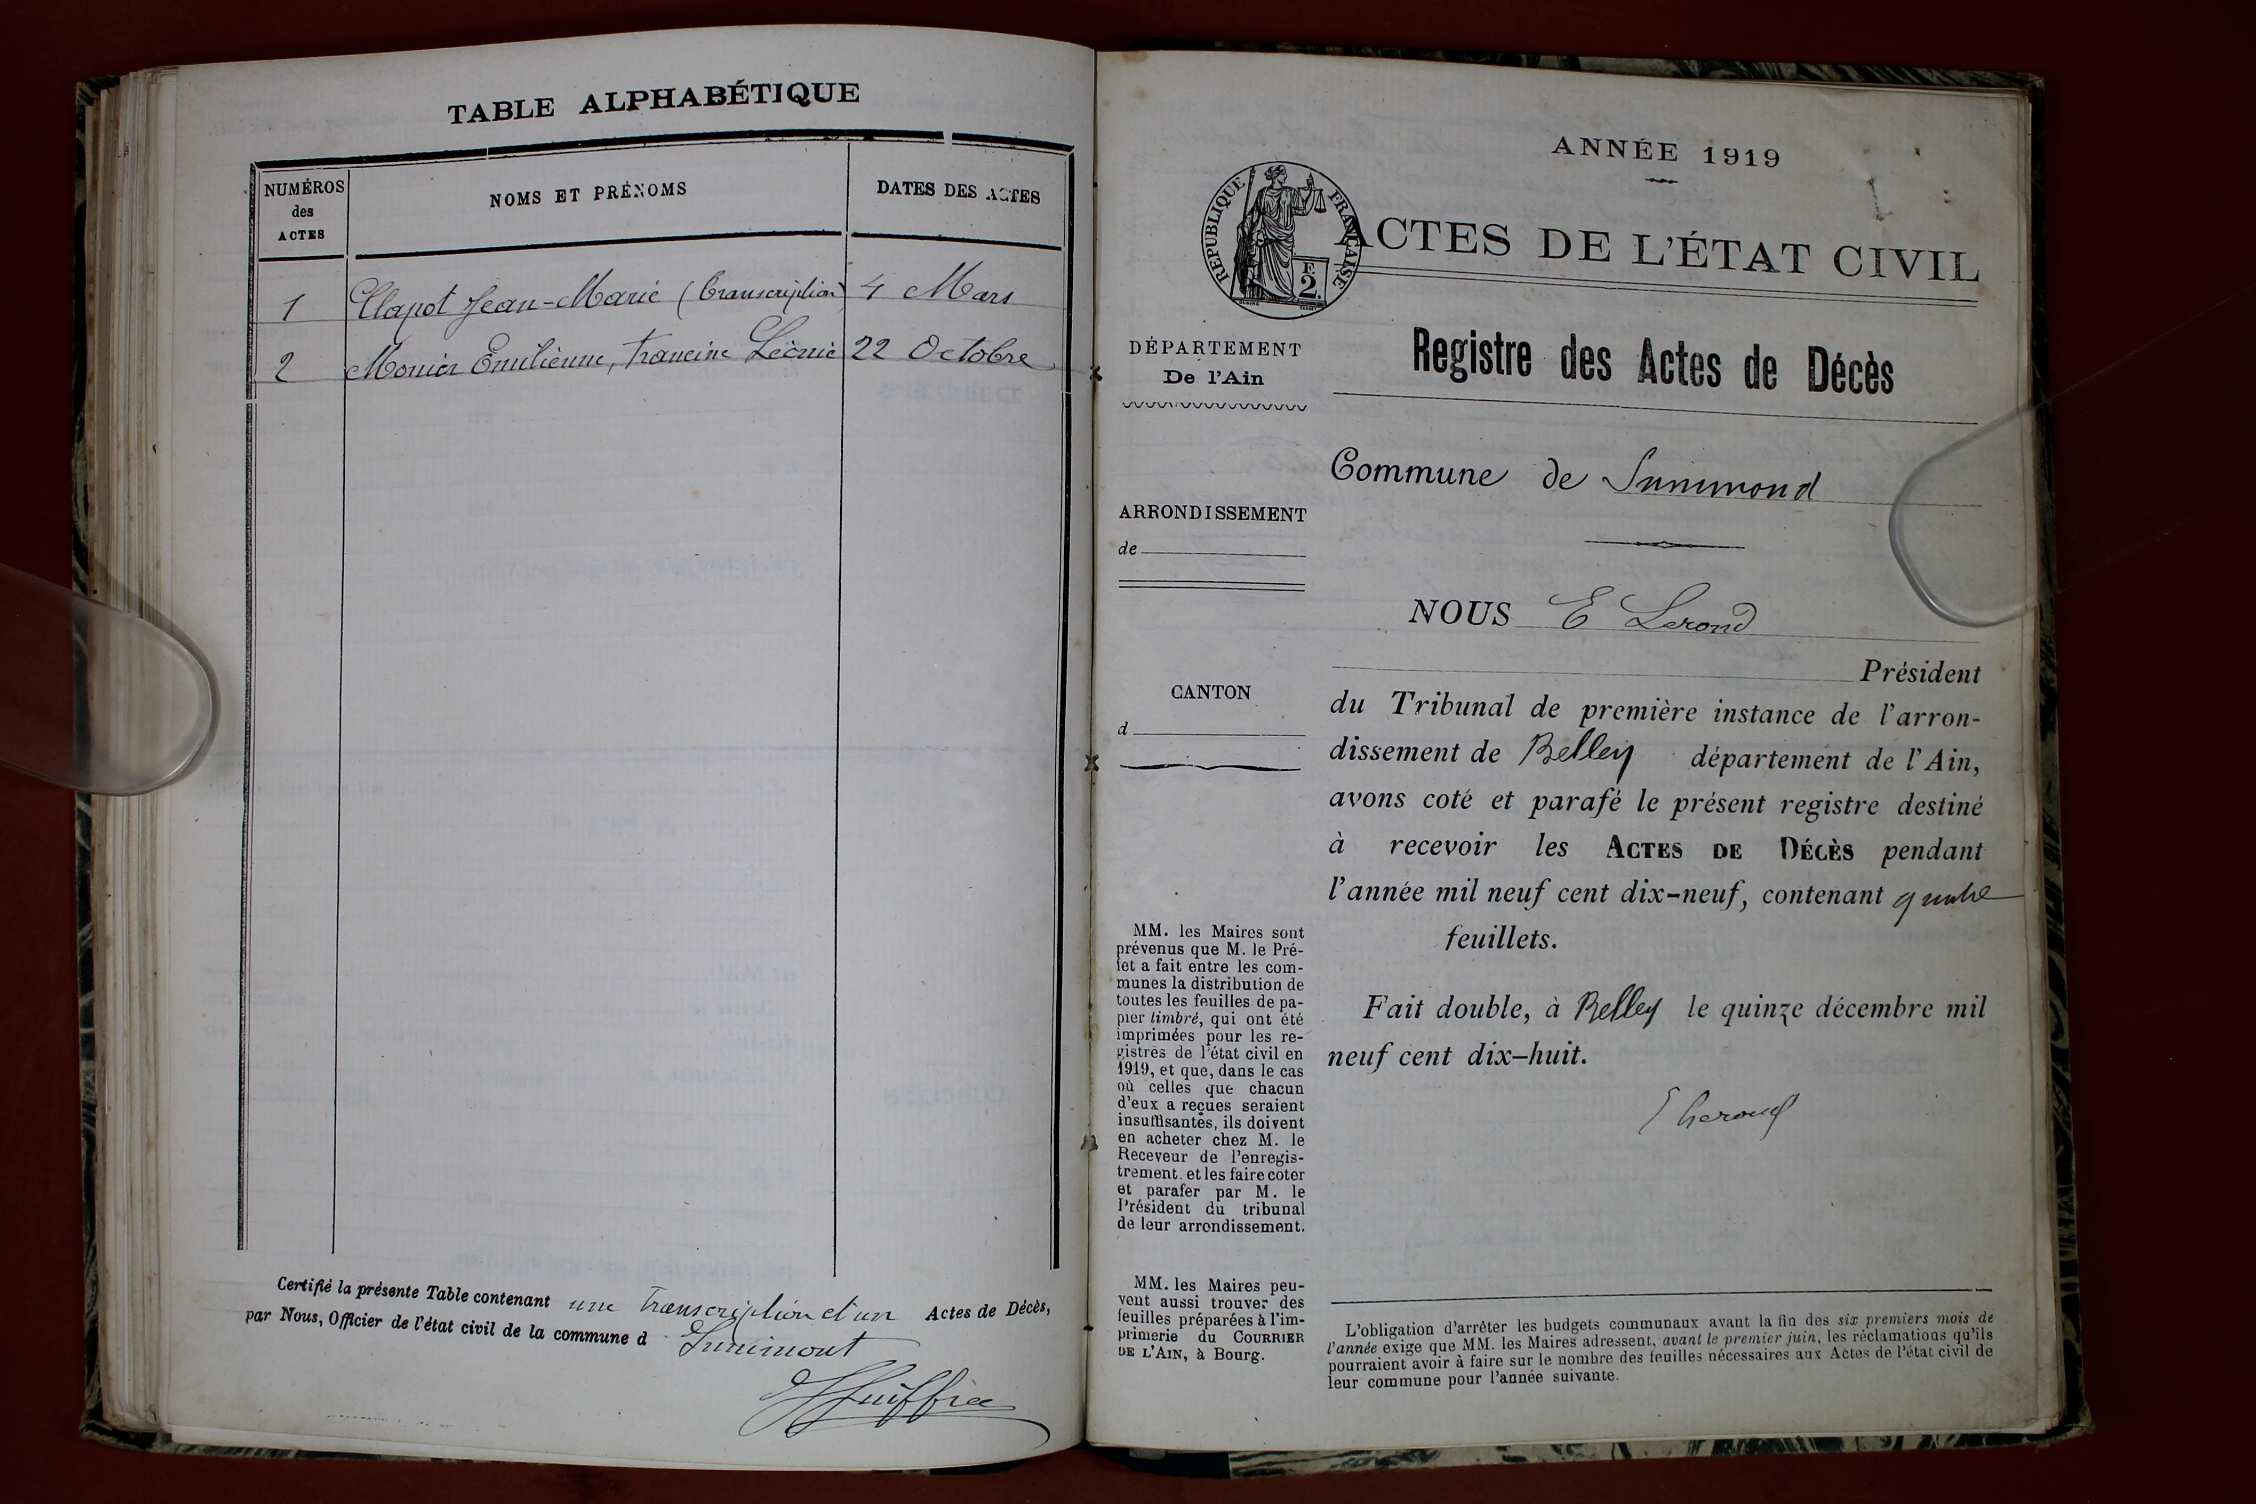 TABLE ALPHABÉTIQUE
NUMÉROS
des
ACTES
NOMS ET PRÉNOMS
DATES DES ACTES
1 Clapot Jean-Marie (transcription) 4 Mars
2 Monier Emilienne, Francine Léonie 22 Octobre
Certifié la présente Table contenant une transcription et un Actes de Décès,
par Nous, Officier de l'état civil de la commune d
ANNÉE 1919
RÉPUBLIQUE FRANÇAISE
F.
2.
ACTES DE L'ÉTAT CIVIL
Registre des Actes de Décès
DÉPARTEMENT
De l'Ain
ARRONDISSEMENT
de
CANTON
d
MM. les Maires sont
prévenus que M. le Pré-
fet a fait entre les com-
munes la distribution de
toutes les feuilles de pa-
pier timbré, qui ont été
imprimées pour les re-
gistres de l'état civil en
1919, et que, dans le cas
où celles que chacun
d'eux a reçues seraient
insuffisantes, ils doivent
en acheter chez M. le
Receveur de l'enregis-
trement. et les faire coter
et parafer par M. le
Président du tribunal
de leur arrondissement.
MM. les Maires peu-
vent aussi trouver des
feuilles préparées à l'im-
primerie du COURRIER
DE L'AIN, à Bourg.
Commune de
NOUS E Lerond
Président
du Tribunal de première instance de l'arron-
dissement de Belley département de l'Ain,
avons coté et parafé le présent registre destiné
à recevoir les ACTES DE DÉCÈS pendant
l'année mil neuf cent dix-neuf, contenant quatre
feuillets.
Fait double, à Belley le quinze décembre mil
neuf cent dix-huit.
L'obligation d'arrêter les budgets communaux avant la fin des six premiers mois de
l'année exige que MM. les Maires adressent, avant le premier juin, les réclamations qu'ils
pourraient avoir à faire sur le nombre des feuilles nécessaires aux Actes de l'état civil de
leur commune pour l'année suivante.